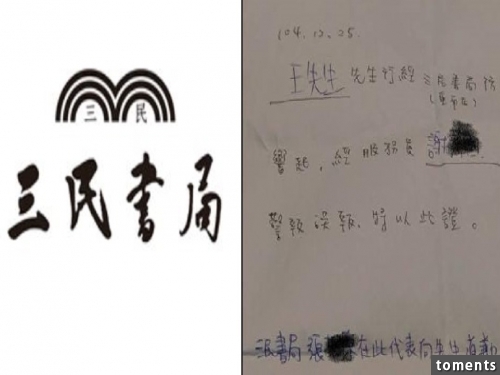 三 民
三民書局
104.12.25.
王先生 先生行經 三民書局防
響起, 經服務員 謝
警報誤報, 特以此證。
三民書局 張 在此代表向先生道歉
toments